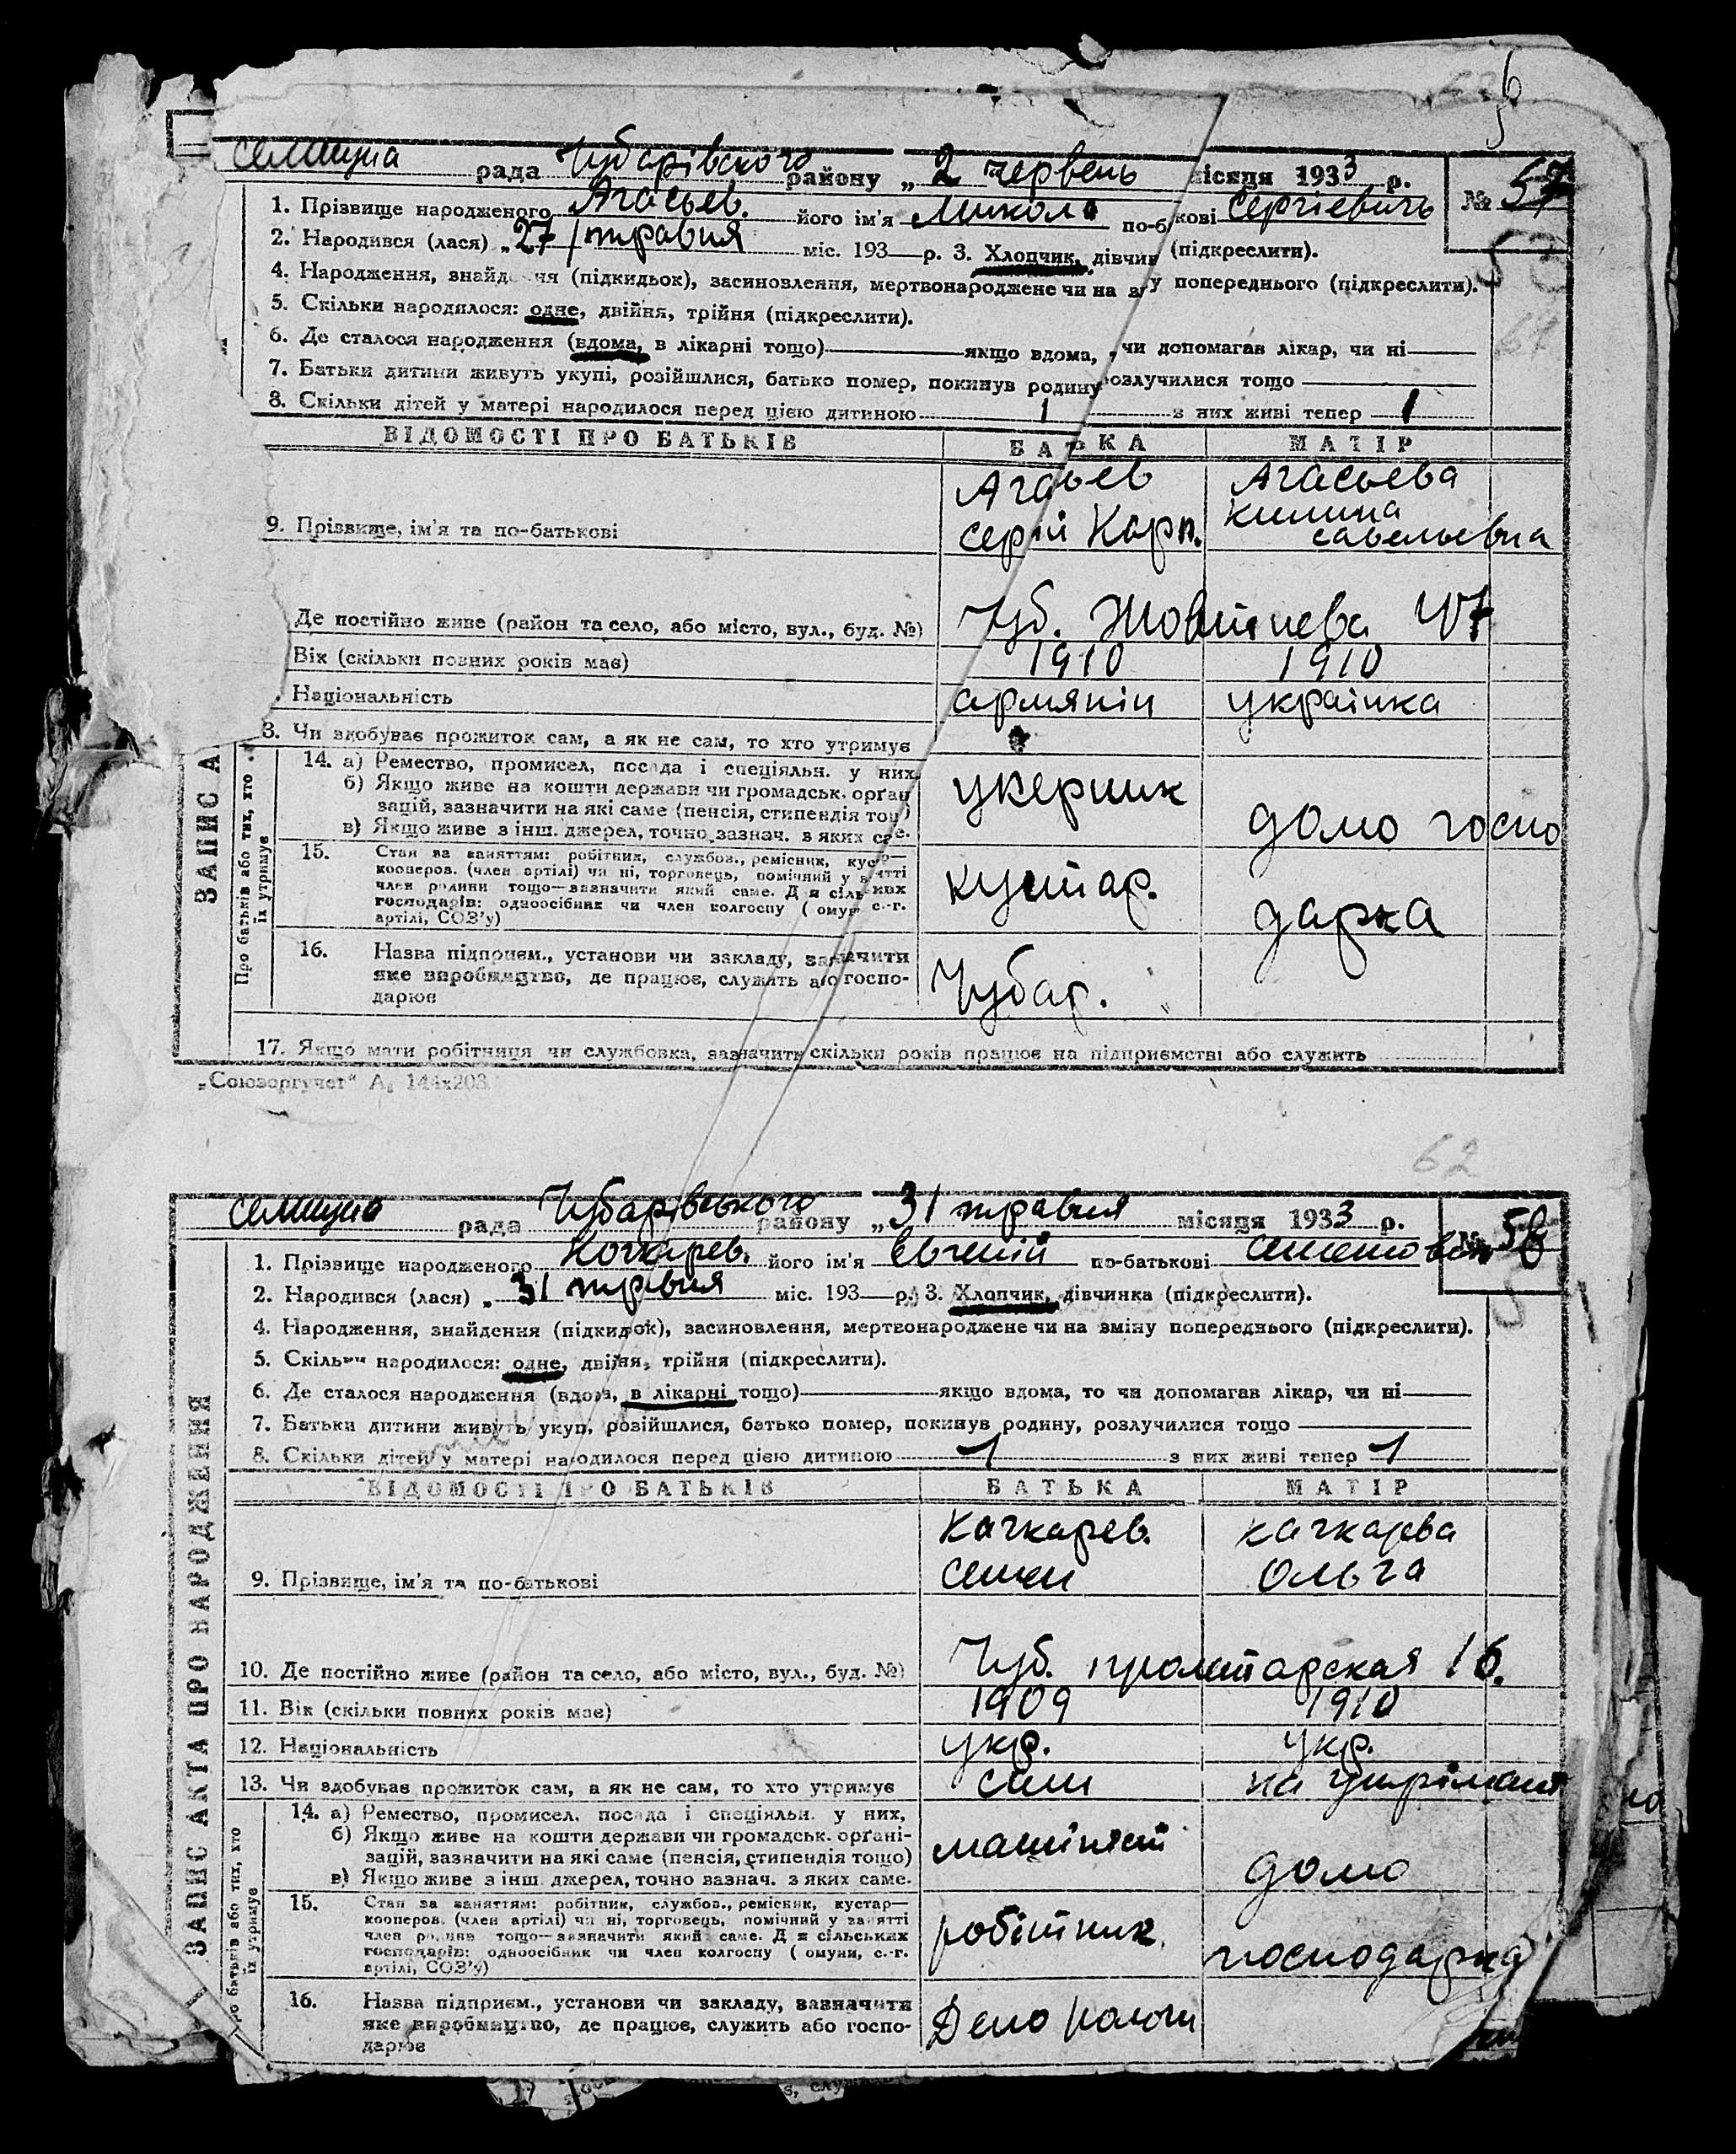 6
селищна рада Чубарівського району „2 червень місяця 1933 р. № 57
1. Прізвище народженого Агасьев. його ім'я Микола по-б кові Сергіевичь
2. Народився (лася) „27 травня міс. 193 р. 3. Хлопчик, дівчин (підкреслити).
4. Народження, знайд ня (підкидьок), засиновлення, мертвонароджене чи на з у попереднього (підкреслити).
5. Скільки народилося: одне, двійня, трійня (підкреслити).
6. Де сталося народження (вдома, в лікарні тощо) якщо вдома, чи допомагав лікар, чи ні
7. Батьки дитини живуть укупі, розійшлися, батько помер, покинув родину розлучилися тощо
8. Скільки дітей у матері народилося перед цією дитиною 1 з них живі тепер 1
ВІДОМОСТІ ПРО БАТЬКІВ БАТЬКА МАТІР
Агасьев Агасьева
9. Прізвище, ім'я та по-батькові Сергій Карп. Килина
савельевна
Де постійно живе (район та село, або місто, вул., буд. №) Чуб. Жовтнева
Вік (скільки повних років має) 1910 1910
Національність армянін українка
3. Чи здобуває прожиток сам, а як не сам, то хто утримує
ЗАПИС А
Про батьків або тих, хто їх утримує
14. а) Ремество, промисел, посада і спеціяльн. у них,
б) Якщо живе на кошти держави чи громадськ. орган
зацій, зазначити на які саме (пенсія, стипендія тощ)
в) Якщо живе з інш. джерел, точно зазнач. з яких сае.
укерник домо госпо
15. Стан за заняттям: робітник, службов., ремісник, куст—
кооперов. (член артілі) чи ні, торговець, помічний у занятті
член родини тощо—зазначити який саме. Дя сільських
господарів: одноосібник чи член колгоспу ( омун с.-г.
артілі, СОЗ'у)
кустар. дарка
16. Назва підприєм., установи чи закладу, зазначити
яке виробництво, де працює, служить або госпо-
дарює
Чубар.
17. Якщо мати робітниця чи службовка, зазначити скільки років працює на підприємстві або служить
„Союзоргучет“ А₅ 144х203
62
селищна рада Чубарівського району „31 травня місяця 1933 р. № 56
1. Прізвище народженого Кочкарев. його ім'я Евгеній по-батькові
2. Народився (лася) „31 травня міс. 193 р. 3. Хлопчик, дівчинка (підкреслити).
4. Народження, знайдення (підкидок), засиновлення, мертвонароджене чи на зміну попереднього (підкреслити).
5. Скільки народилося: одне, двійня, трійня (підкреслити).
6. Де сталося народження (вдома, в лікарні тощо) якщо вдома, то чи допомагав лікар, чи ні
7. Батьки дитини живуть укупі, розійшлися, батько помер, покинув родину, розлучилися тощо
8. Скільки дітей у матері народилося перед цією дитиною 1 з них живі тепер 1
ВІДОМОСТІ ПРО БАТЬКІВ БАТЬКА МАТІР
Качкарев. качкарева
9. Прізвище, ім'я та по-батькові Семен Ольга
10. Де постійно живе (район та село, або місто, вул., буд. №) Чуб. пролетарская 16.
11. Вік (скільки повних років має) 1909 1910
12. Національність укр. укр.
13. Чи здобуває прожиток сам, а як не сам, то хто утримує сам на
ЗАПИС АКТА ПРО НАРОДЖЕННЯ
Про батьків або тих, хто їх утримує
14. а) Ремество, промисел, посада і спеціяльн. у них,
б) Якщо живе на кошти держави чи громадськ. орґані-
зацій, зазначити на які саме (пенсія, стипендія тощо)
в) Якщо живе з інш. джерел, точно зазнач. з яких саме.
машиніст домо
15. Стан за заняттям: робітник, службов., ремісник, кустар—
кооперов. (член артілі) чи ні, торговець, помічний у занятті
член родини тощо—зазначити який саме. Дя сільських
господарів: одноосібник чи член колгоспу ( омуни, с.-г.
артілі, СОЗ'у)
робітник господарка
16. Назва підприєм., установи чи закладу, зазначити
яке виробництво, де працює, служить або госпо-
дарює
Депо